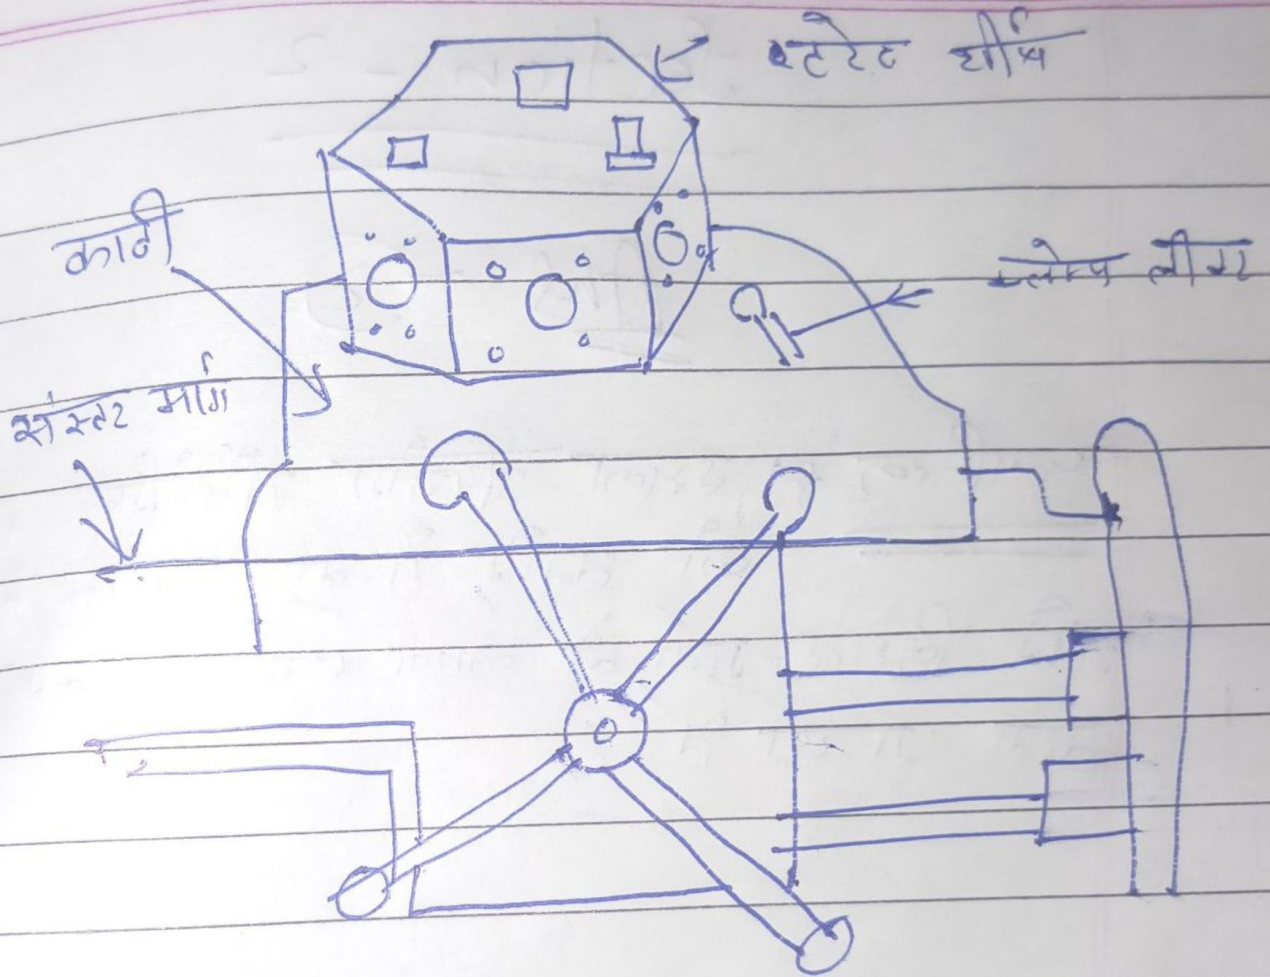 टरेट शीर्ष
काठी
क्लेम्प लीवर
संस्टर मार्ग